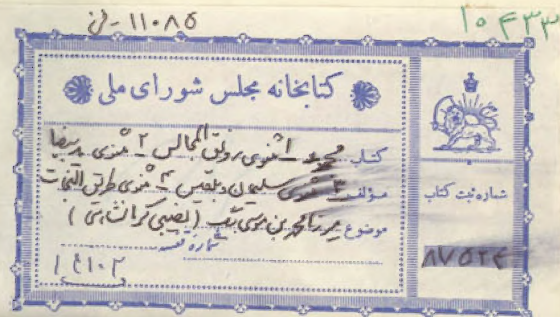 ۱۱۰۸۵ - ف
۱۰۴۳۳
کتابخانه مجلس شورای ملی
کتاب ۱ مثنوی رونق المجالس ۲ مثنوی ید بیضا
مؤلف ۳ مثنوی سلیمان و بلقیس ۴ مثنوی طریق النجات
موضوع بن موسی (نصیبی کرمانشاهی)
شماره قفسه
۱۴۱۰۲
شماره ثبت کتاب
۸۷۵۲۴